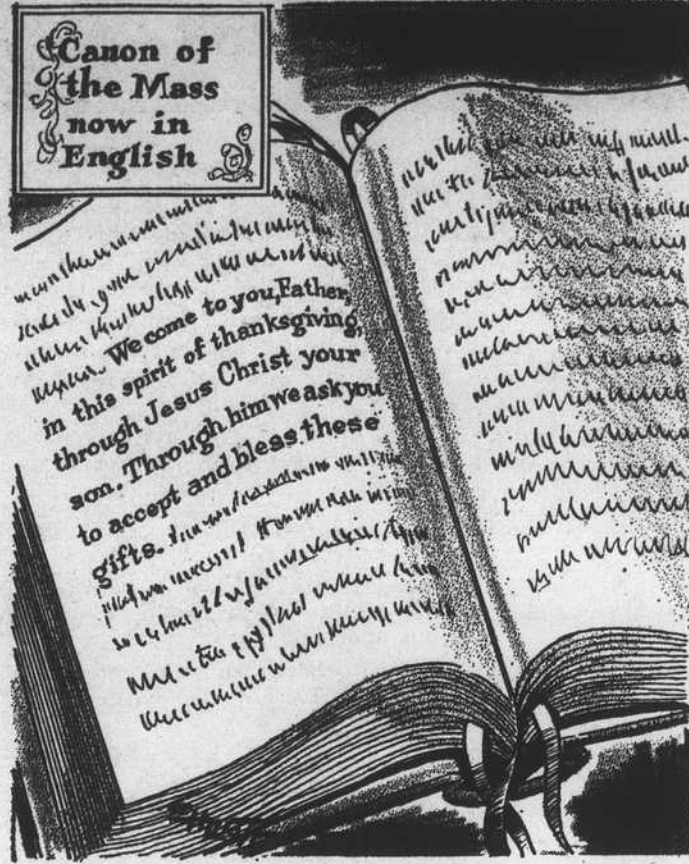 Canon of
the Mass
now in
English
We come to you, Father,
in this spirit of thanksgiving,
through Jesus Christ your
son. Through him we ask you
to accept and bless these
gifts.